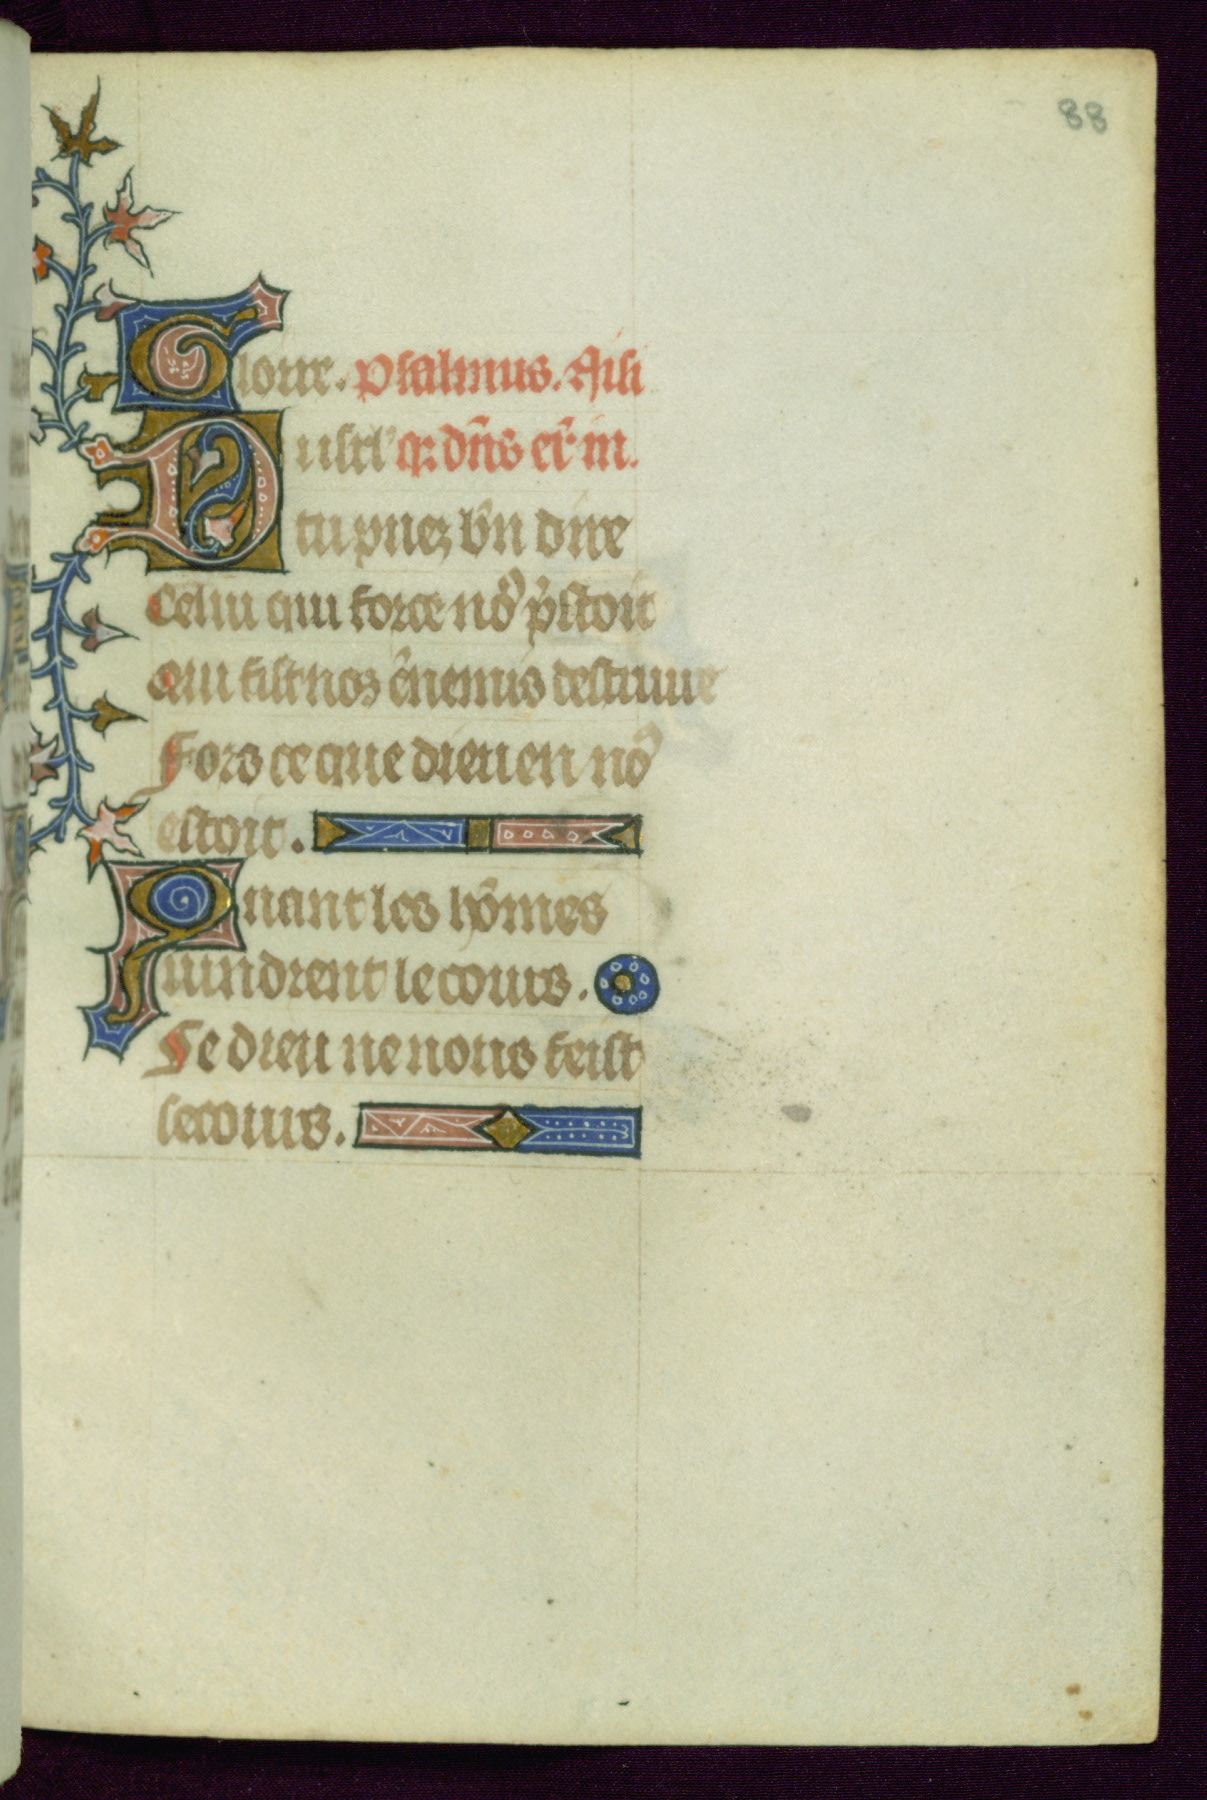 88
Gloire. Psalmus. Nisi
Disrl' q: dn̄s er̄ in.
tu puez bn̄ dire
Celui qui force no᷒ p̄stoit
Qui fist noz ēnemis destruire
Fors ce que dieu en no᷒
estoit.
Quant les hōmes
uindrent le cours.
Se dieu ne nous feist
secours.